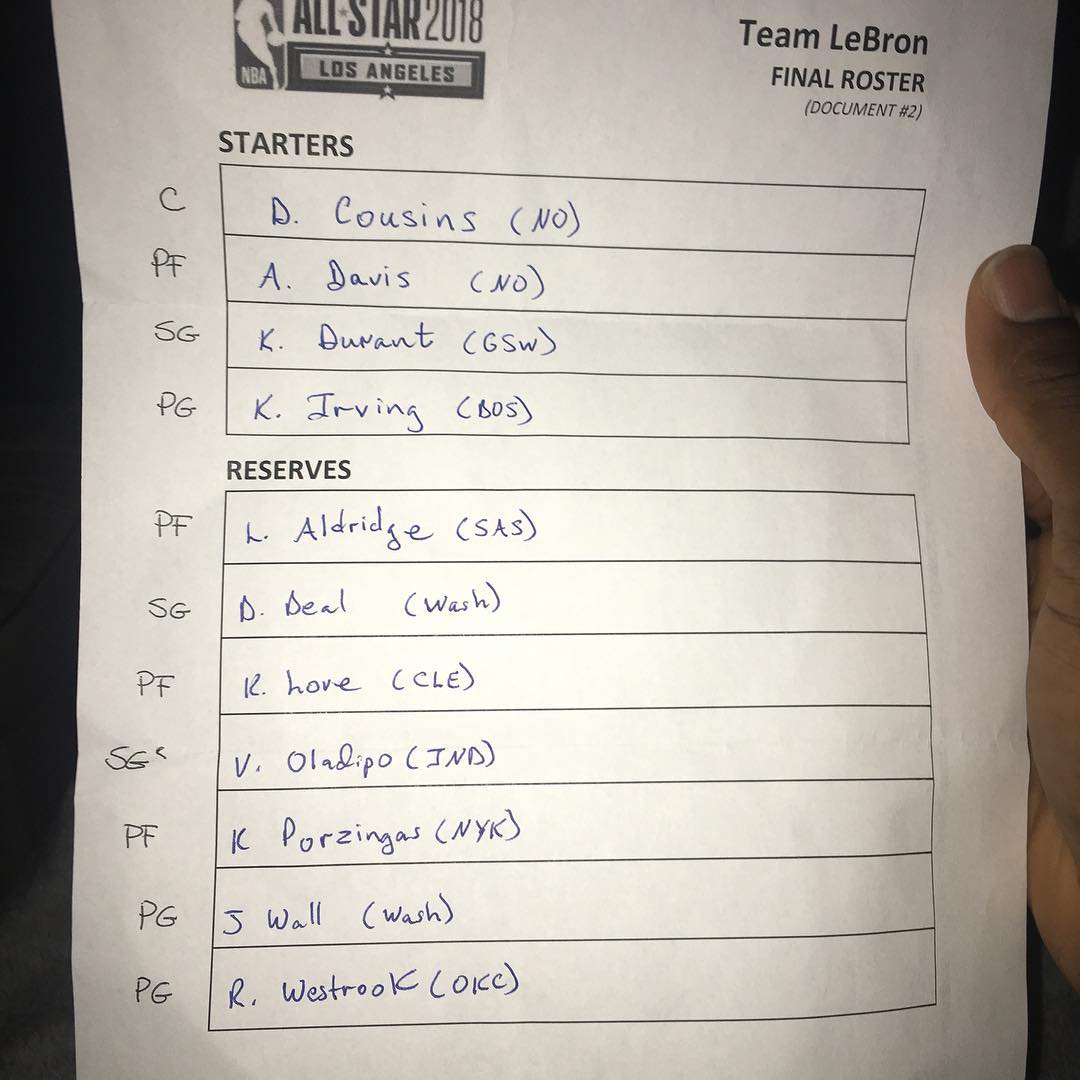 ALL-STAR 2018
NBA
LOS ANGELES
Team LeBron
FINAL ROSTER
(DOCUMENT #2)
STARTERS
C D. Cousins (NO)
PF A. Davis (NO)
SG K. Durant (GSW)
PG K. Irving (BOS)
RESERVES
PF L. Aldridge (SAS)
SG B. Beal (Wash)
PF K. Love (CLE)
SG V. Oladipo (IND)
PF K Porzingas (NYK)
PG J Wall (Wash)
PG R. Westrook (OKC)